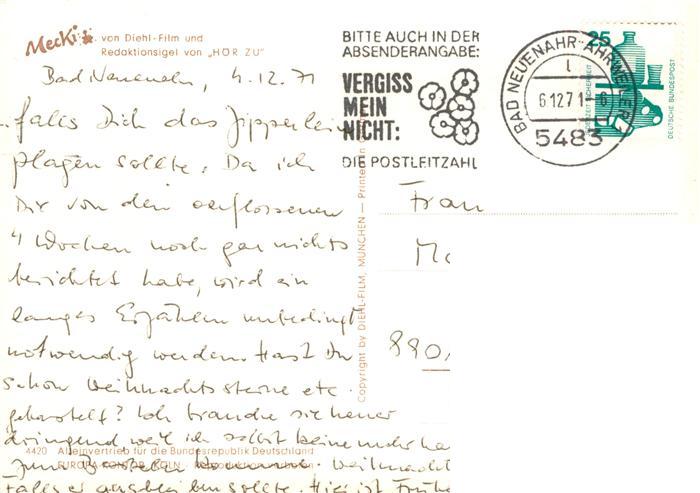 Mecki von Diehl-Film und
Redaktionsigel von „HÖR ZU"
BITTE AUCH IN DER
ABSENDERANGABE:
VERGISS
MEIN
NICHT:
DIE POSTLEITZAHL
BAD NEUENAHR-AHRWEILER 1
l
6.12.71-8
5483
25
DEUTSCHE BUNDESPOST
Bad Neuenahr, 4.12.71
..falls Dich das Zipperlein
plagen sollte. Da ich
Dir von den verflossenen
4 Wochen noch gar nichts
berichtet habe, wird ein
langes Erzählen unbedingt
notwendig werden. Hast Du
schon Weihnachtssterne etc.
gebastelf? Ich brauche sie heuer
dringend weil ich selbst keine mehr ha
zum Weihnacht
Falls er ausbleiben sollte. Hier ist Frühe
Frau
880
Copyright by DIEHL-FILM, MÜNCHEN — Printed in
4420 Alleinvertrieb für die Bundesrepublik Deutschland
EUROPA KÖLN